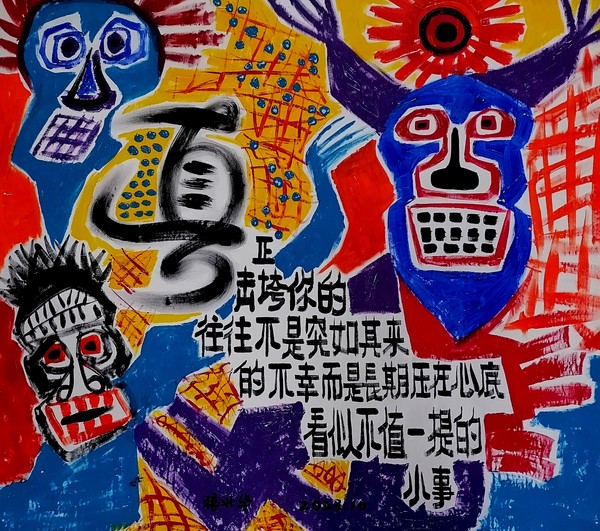 真
正
击垮你的
往往不是突如其来
的不幸而是長期压在心底
看似不值一提的
小事